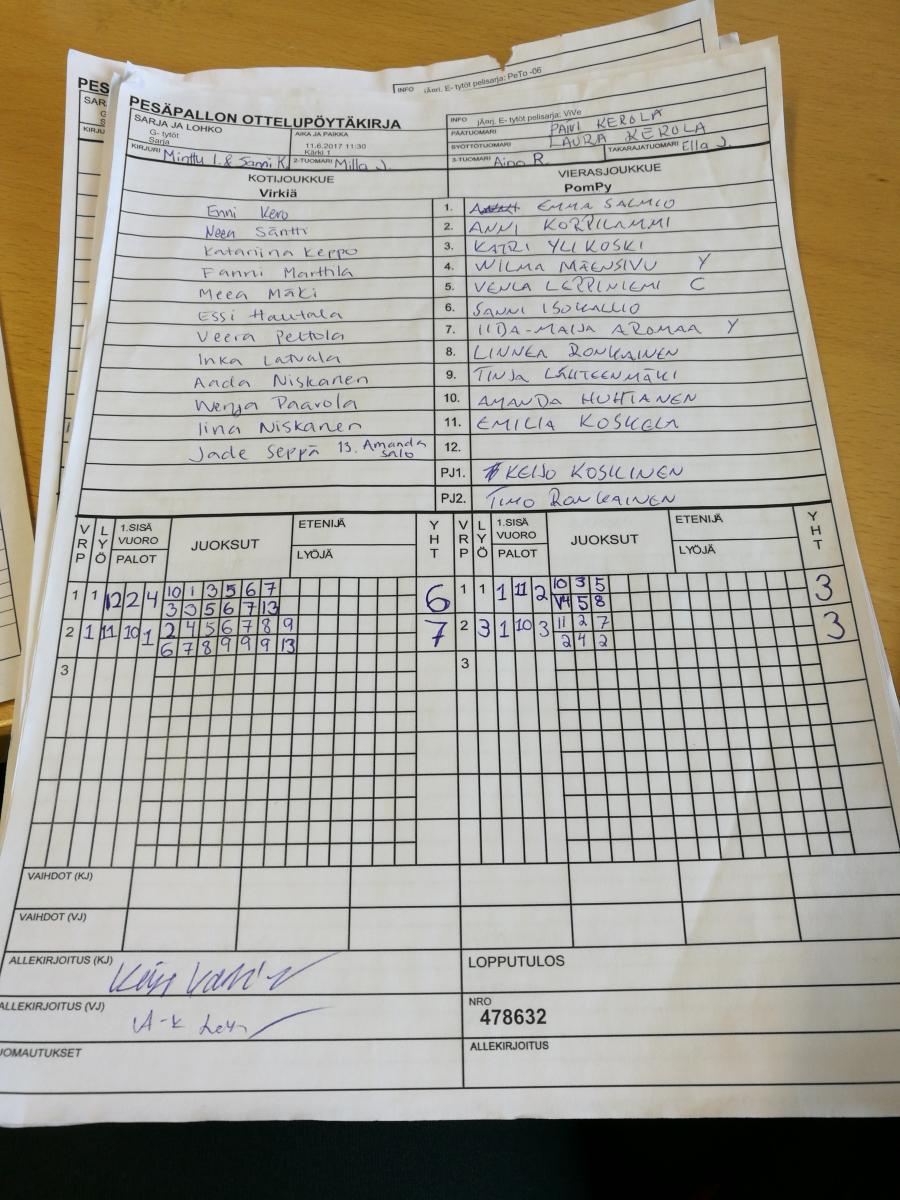 INFO jÄrj. E- tytöt pelisarja: PeTo -06
PESÄPALLON OTTELUPÖYTÄKIRJA
SARJA JA LOHKO
G- tytöt
Sarja
AIKA JA PAIKKA
11.6.2017 11:30
Kärki 1
KIRJURI Minttu I. & Sanni K.
2-TUOMARI Milla J.
INFO jÄrj. E- tytöt pelisarja: ViVe
PÄÄTUOMARI PÄIVI KEROLA
SYÖTTÖTUOMARI LAURA KEROLA
TAKARAJATUOMARI Ella J.
3-TUOMARI Aino R.
KOTIJOUKKUE
Virkiä
VIERASJOUKKUE
PomPy
Enni Kero 1. EMMA SALMIO
Neea Säntti 2. ANNI KORPILAMMI
Katariina Keppo 3. KATRI YLIKOSKI
Fanni Marttila 4. WILMA MÄENSIVU Y
Meea Mäki 5. VENLA LEPPINIEMI C
Essi Hautala 6. SANNI ISOKALLIO
Veera Peltola 7. IIDA-MAIJA AROMAA Y
Inka Latvala 8. LINNEA RONKAINEN
Aada Niskanen 9. TINJA LÄHTEENMÄKI
Wenja Paavola 10. AMANDA HUHTANEN
Iina Niskanen 11. EMILIA KOSKELA
Jade Seppä 13. Amanda Salo 12.
PJ1. KEIJO KOSKINEN
PJ2. TIMO RONKAINEN
VRP LYÖ 1.SISÄ VUORO PALOT JUOKSUT ETENIJÄ LYÖJÄ YHT VRP LYÖ 1.SISÄ VUORO PALOT JUOKSUT ETENIJÄ LYÖJÄ YHT
1 1 12 2 4 10 1 3 5 6 7 6 1 1 1 11 2 10 3 5 3
3 3 5 6 7 13 V4 5 8
2 1 11 10 1 2 4 5 6 7 8 9 7 2 3 1 10 3 11 2 7 3
6 7 8 9 9 9 13 2 4 2
3 3
VAIHDOT (KJ)
VAIHDOT (VJ)
ALLEKIRJOITUS (KJ)
LOPPUTULOS
ALLEKIRJOITUS (VJ)
NRO
478632
OMAUTUKSET
ALLEKIRJOITUS